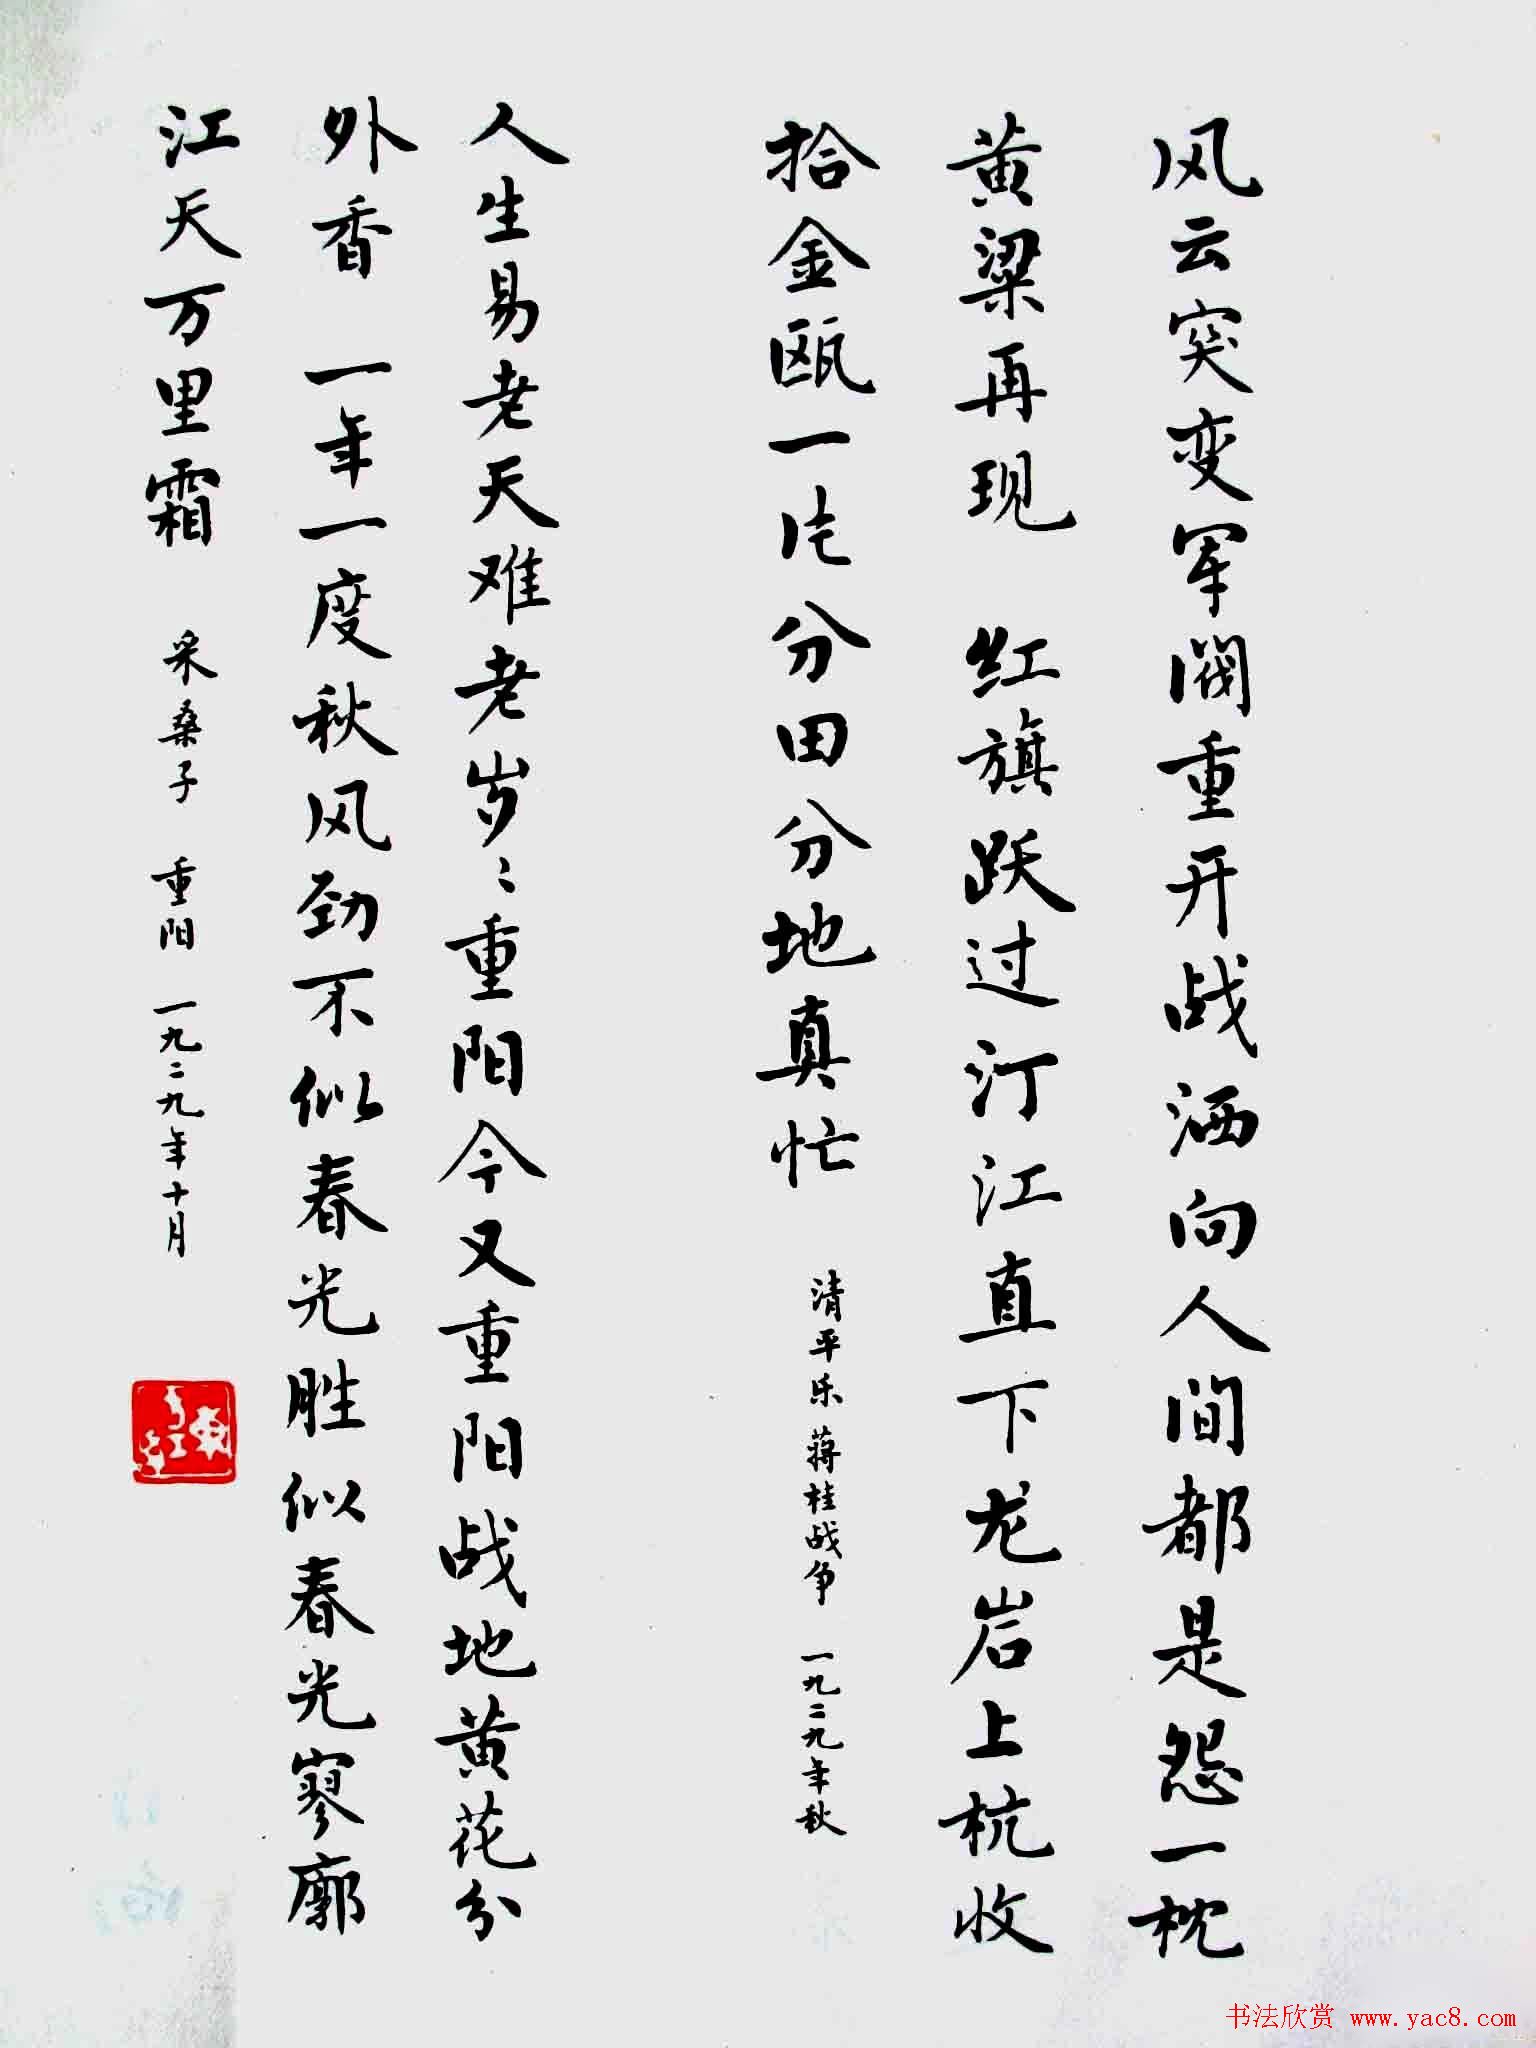 风云突变军阀重开战洒向人间都是怨一枕
黄粱再现 红旗跃过汀江直下龙岩上杭收
拾金瓯一片分田分地真忙
清平乐 蒋桂战争 一九二九年秋
人生易老天难老岁〻重阳今又重阳战地黄花分
外香 一年一度秋风劲不似春光胜似春光寥廓
江天万里霜
采桑子 重阳 一九二九年十月
书法欣赏 www.yac8.com